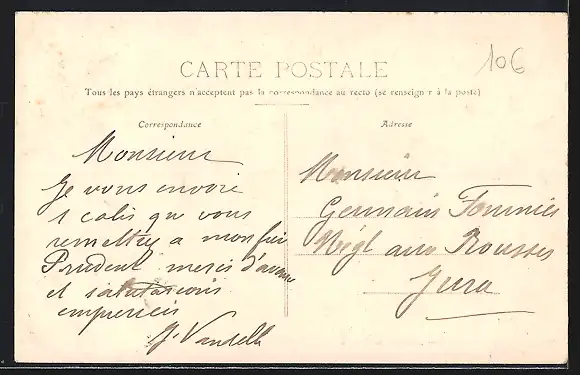 CARTE POSTALE
106
Tous les pays étrangers n'acceptent pas la correspondance au recto (se renseigner à la poste)
Correspondance
Monsieur
Je vous envoie
1 colis que vous
remettrez a mon
Prudent merci d'avance
et salutations
empressées
J. Vandelle
Adresse
Monsieur
Germain
Négt aux Rousses
Jura